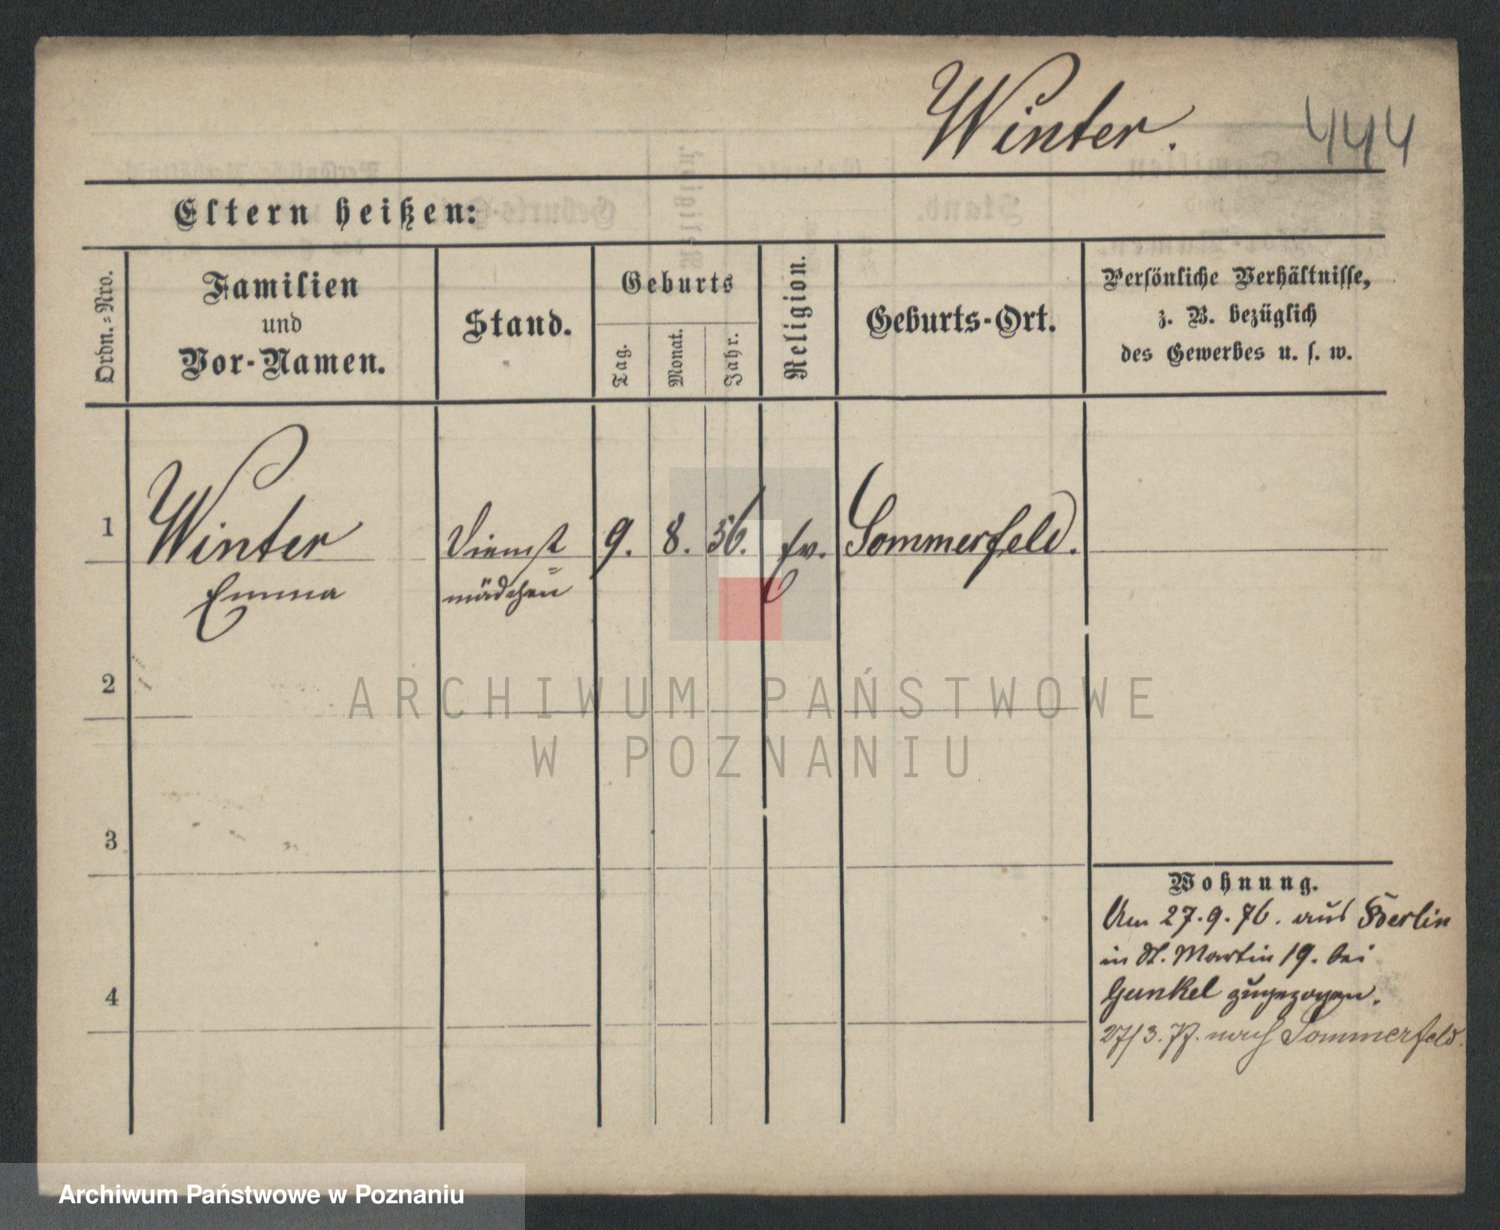 Winter.
444
Eltern heißen:
Ordn.=Nro.
Familien
und
Vor-Namen.
Stand.
Geburts
Tag.
Monat.
Jahr.
Religion.
Geburts-Ort.
Persönliche Verhältnisse,
z. B. bezüglich
des Gewerbes u. s. w.
1
Winter
Emma
Dienst
mädchen
9.
8.
56.
ev.
Sommerfeld.
2
ARCHIWUM PAŃSTWOWE
W POZNANIU
3
Wohnung.
Am 27.9.76. aus Berlin
in St. Martin 19. bei
Gunkel zugezogen.
4
27/3. 77. nach Sommerfeld.
Archiwum Państwowe w Poznaniu